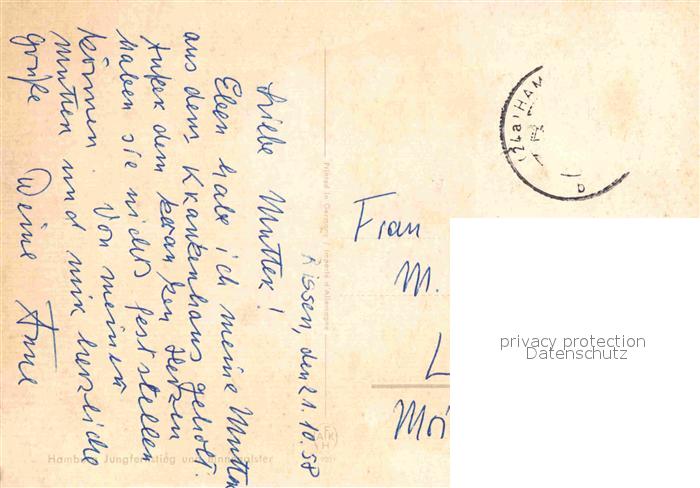 Rissen, den 21.10.58
Liebe Mutter!
Eben habe ich meine Mutter
aus dem Krankenhaus geholt.
Außer dem kranken Herzen
haben sie nichts feststellen
können. Von meinen
Mutter und mir herzliche
Grüße Deine Anne
Printed in Germany / Importé d'Allemagne
AFKH
Hamburg, Jungfernstieg und Binnenalster
(24a) HAM
Frau
M.
L
Mö
privacy protection
Datenschutz